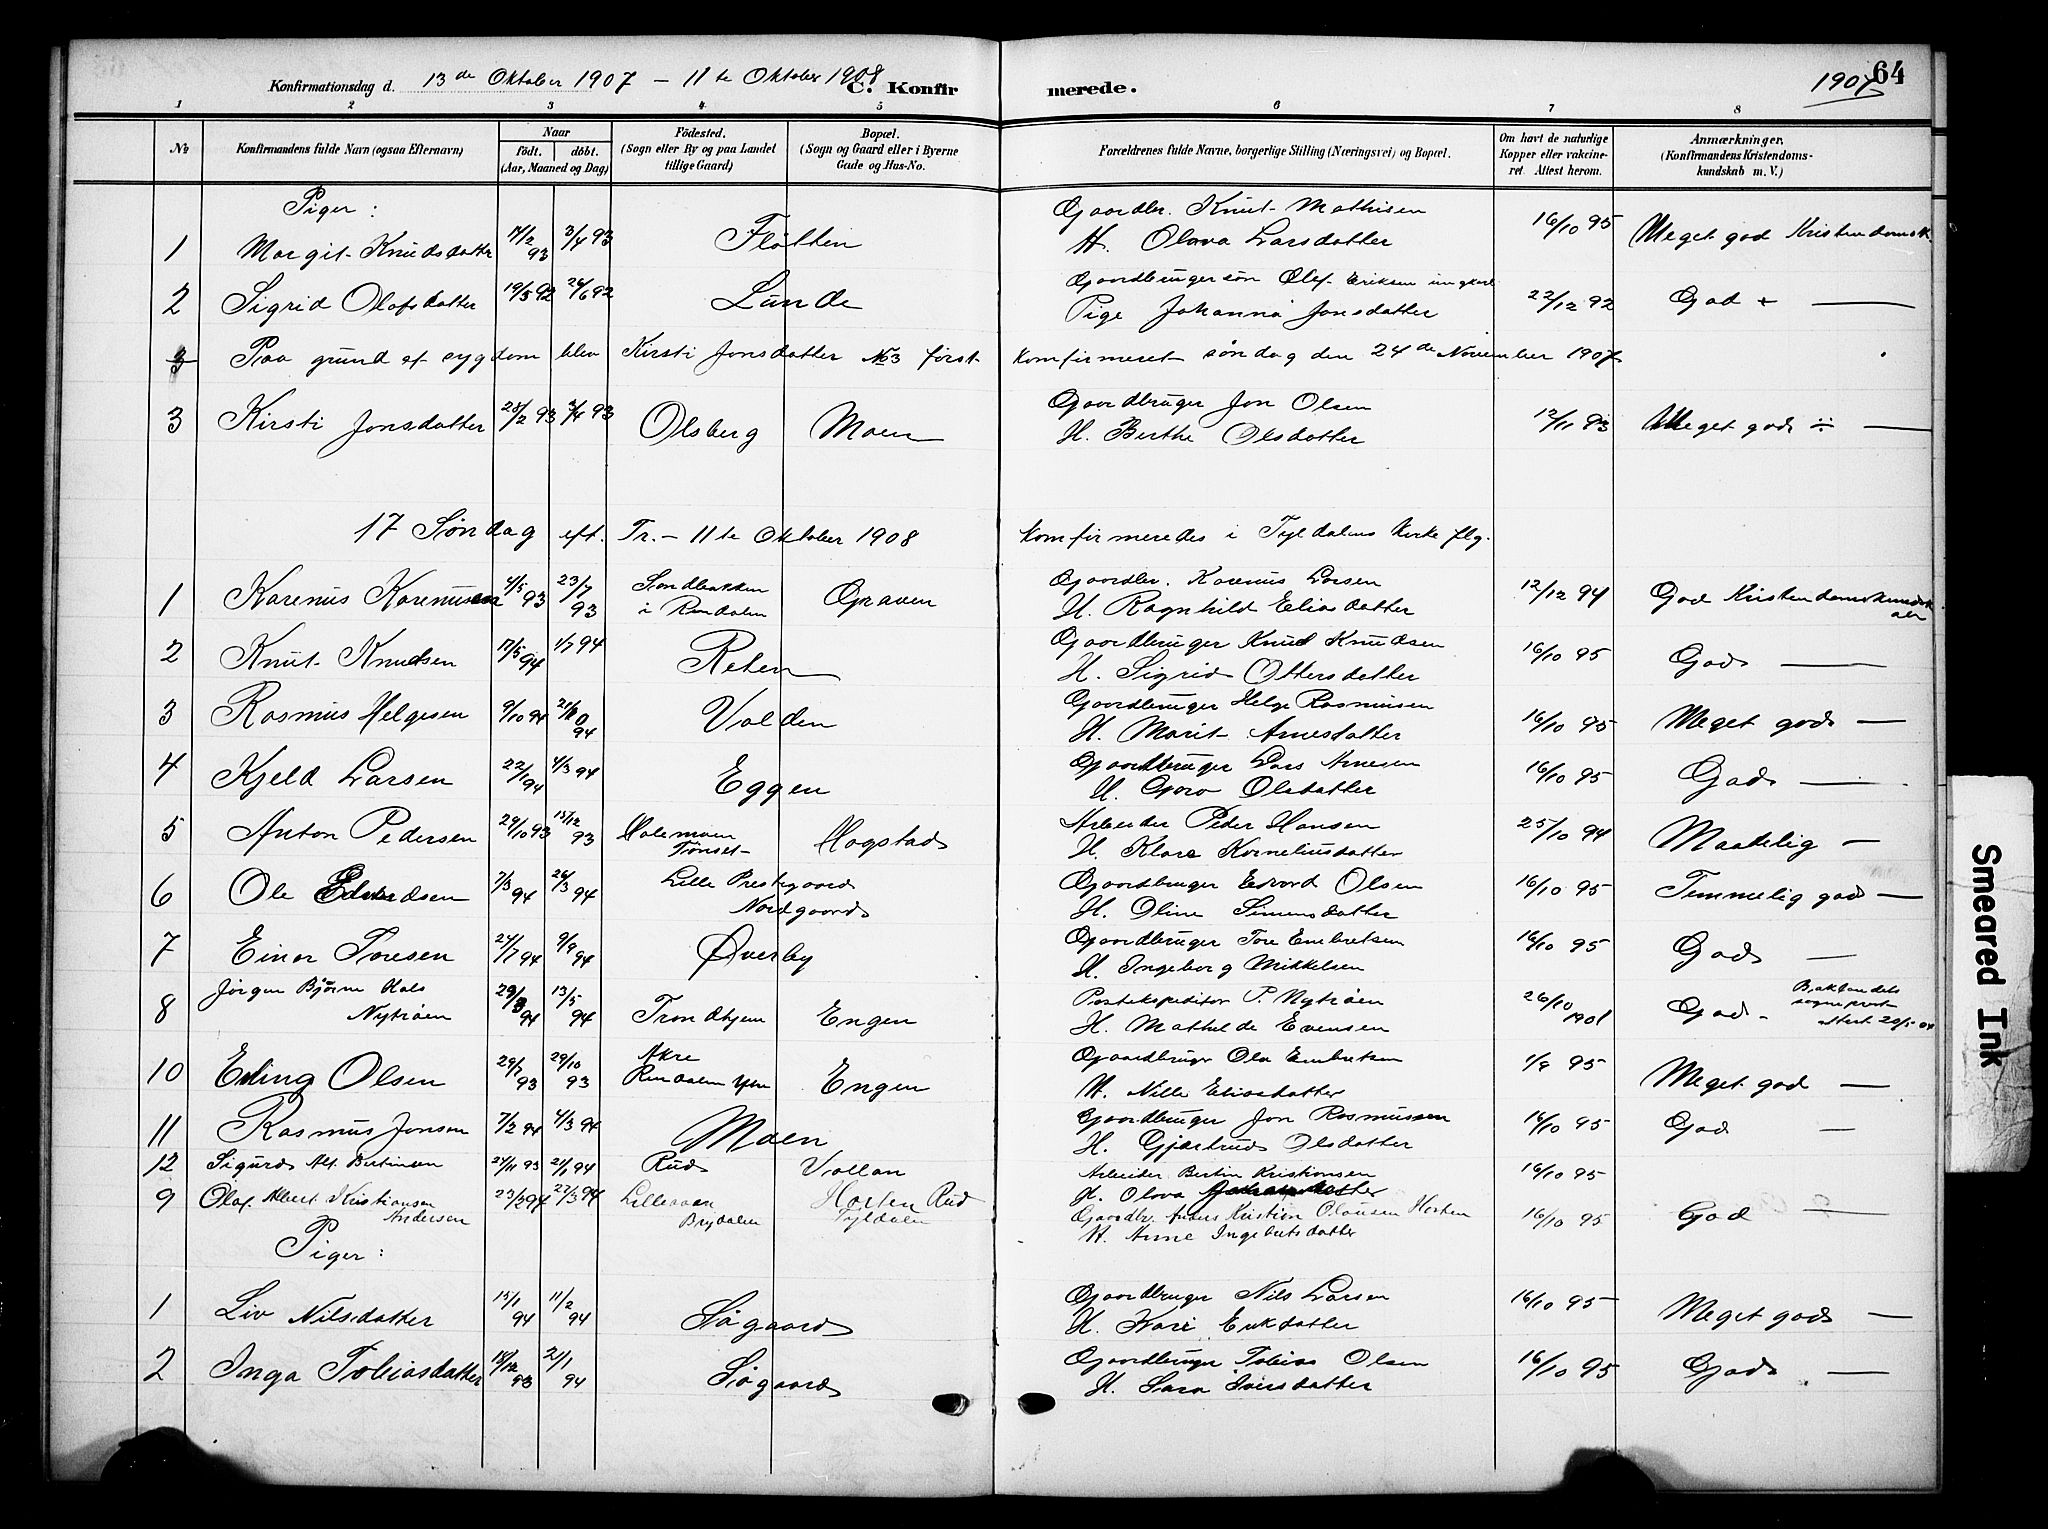 Konfirmationsdag d. 13de Oktober 1907 – 11te Oktober 1908 C. Konfirmerede. 1907 64
1 2 3 4 5 6 7 8
No Konfirmandens fulde Navn (ogsaa Efternavn) Naar født. døbt. (Aar, Maaned og Dag) Fødested. (Sogn eller By og paa Landet tillige Gaard) Bopæl. (Sogn og Gaard eller i Byerne Gade og Hus-No. Forældrenes fulde Navne, borgerlige Stilling (Næringsvei) og Bopæl. Om havt de naturlige Kopper eller vakcineret. Attest herom. Anmærkninger. (Konfirmandens Kristendomskundskab m. V.)
Piger:
1 Margit Knudsdatter 17/2 93 3/4 93 Fløtten Gaardbr. Knut Mathisen H. Olava Larsdatter 16/10 95 Meget god Kristendomsk.
2 Sigrid Olafsdatter 19/5 92 26/6 92 Lunde Gaardbrugersøn Olaf Eriksen ungkarl Pige Johanna Jonsdatter 22/12 92 God + —
3 Paa grund af sygdom blev Kirsti Jonsdatter No 3 først konfirmeret søndag den 24de November 1907.
3 Kirsti Jonsdatter 28/2 93 3/4 93 Olsberg Moen Gaardbruger Jon Olsen H. Berthe Olsdatter 12/11 93 Meget god ÷ —
17 Søndag eft. Tr. – 11te Oktober 1908 konfirmeredes i Tyldalens Kirke flg.
1 Karenus Karenusen 4/5 93 23/7 93 Sandbakken i Rendalen Graven Gaardbr. Karenus Larsen H. Ragnhild Eliasdatter 12/12 94 God Kristendomskundskab
2 Knut Knudsen 17/5 94 1/7 94 Reten Gaardbruger Knud Knudsen H. Sigrid Ottersdatter 16/10 95 God —
3 Rasmus Helgesen 9/10 94 94 Volden Gaardbruger Helge Rasmusen H. Marit Arnesdatter 16/10 95 Meget god —
4 Kjeld Larsen 22/1 94 4/3 94 Eggen Gaardbruger Lars Arnesen H. Goro Olsdatter 16/10 95 God —
5 Anton Pedersen 29/10 93 13/12 93 Holemoen Tønset Hogstad Arbeider Peder Hansen H. Klara Korneliusdatter 25/10 94 Maadelig —
6 Ole Edvardsen 7/3 94 26/3 94 Lille Prestegaard Nordgaard Gaardbruger Edvard Olsen H. Oline Simensdatter 16/10 95 Temmelig god —
7 Einar Toresen 24/7 94 9/9 94 Øverby Gaardbruger Tore Embretsen H. Ingeborg Mikkelsen 16/10 95 God —
8 Jørgen Bjørne Hals Nytrøen 29/3 94 13/5 94 Trondhjem Engen Postekspeditør P. Nytrøen H. Mathilde Evensen 26/10 1901 God – Baklandets sogneprest attest 20/5 04
10 Erling Olsen 29/7 93 29/10 93 Akre Rendalen Engen Gaardbruger Ola Embretsen H. Nille Eliasdatter 1/9 95 Meget god —
11 Rasmus Jonsen 7/2 94 4/3 94 Moen Gaardbruger Jon Rasmussen H. Gjertrud Olsdatter 16/10 95 God —
12 Sigurd Alf. Bertinsen 24/11 93 21/1 94 Rud Vollan Arbeider Bertin Kristiansen H. Olava 16/10 95
9 Olaf Albert Kristiansen Andersen 23/2 94 27/3 94 Lilleraaen Brydalen Horten Rud Tyldalen Gaardbr. Anders Kristian Olausen Horten H. Anne Ingebretsdatter 16/10 95 God —
Piger:
1 Liv Nilsdatter 15/1 94 11/2 94 Søgaard Gaardbruger Nils Larsen H. Kari Erikdatter 16/10 95 Meget god —
2 Inga Tobiasdatter 18/12 93 21/1 94 Søgaard Gaardbruger Tobias Olsen H. Sara Iversdatter 16/10 95 God —
Smeared Ink